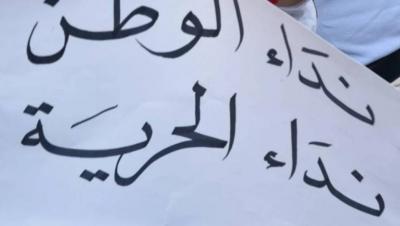 نداء الوطن
نداء الحرية